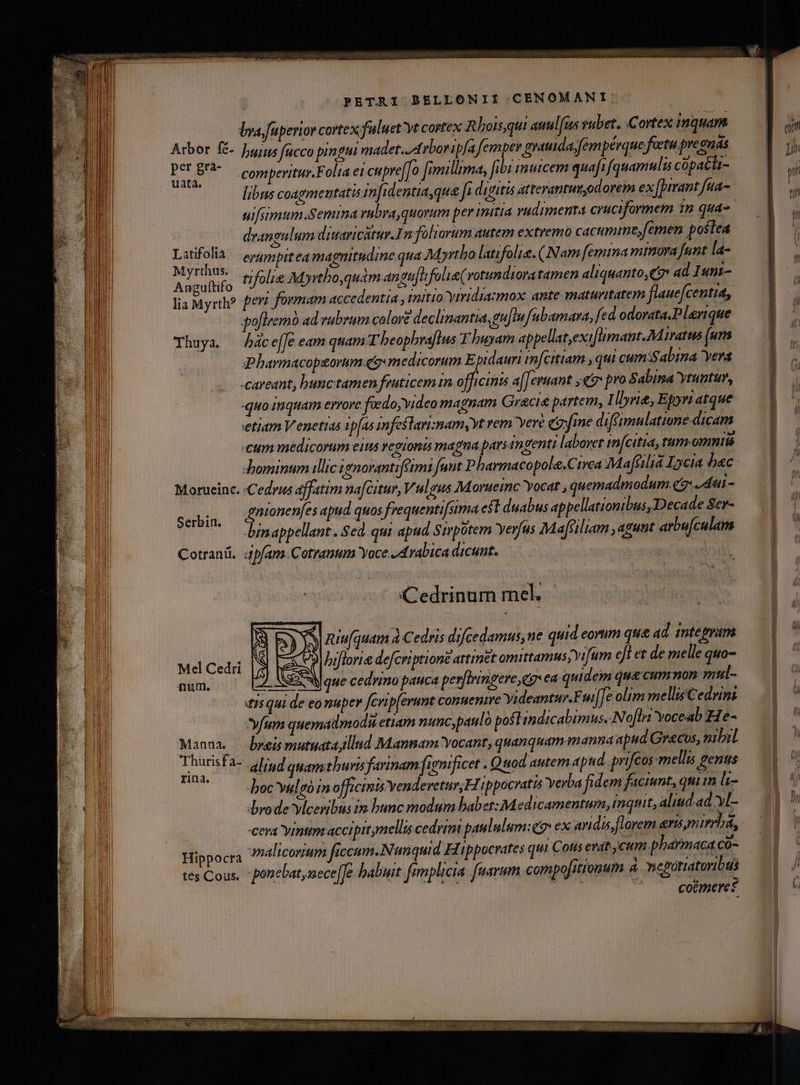 PETRI BELLONII CENOMANI
bra, superior cortex fuluet vt cortex Rhois, qui annsus rubet. Cortex inquam
Arbor fę- huius succo pingui madet. Arbor ipsa semper grauida, sempérque fœtu pregnās
per gra- comperitur. Folia ei cupresso simillima, sibi inuicem quasi squamulis cōpacti-
uata. libus coagmentatis insidentia, quæ si digitis atterantur, odorem ex spirant sua-
uissimum. Semina rubra, quorum per initia rudimenta cruciformem in qua-
drangulum diuaricātur. In foliorum autem extremo cacumine, semen postea
Latifolia erumpit ea magnitudine qua Myrtho latifoliæ. (Nam semina minora sunt la-
Myrthus. tifoliæ Myrtho, quàm angustifoliæ (rotundiora tamen aliquanto, & ad Iuni-
Angustifo
lia Myrth⁹ peri formam accedentia, initio viridia: mox ante maturitatem flauescentia,
postremò ad rubrum colorē declinantia, gustu subamara, sed odorata. Plerique
Thuya. hāc esse eam quam Theophrastus Thuyam appellat, existimant. Miratus sum
Pharmacopæorum & medicorum Epidauri inscitiam, qui cum Sabina vera
careant, hunc tamen fruticem in officinis asseruant, & pro Sabina vtuntur,
quo inquam errore fœdo, video magnam Græciæ partem, Illyriæ, Epyri atque
etiam Venetias ipsas infestari: nam, vt rem verè & sine dissimulatione dicam
cum medicorum eius regionis magna pars ingenti laboret inscitia, tum omniū
hominum illic ignorantissimi sunt Pharmacopolæ. Circa Massiliā Lycia hæc
Morueinc. Cedrus affatim nascitur, Vulgus Morueinc vocat, quemadmodum & Aui-
gnionenses apud quos frequentissima est duabus appellationibus, Decade Ser-
Serbin. bin appellant. Sed qui apud Sirpōtem versus Massiliam, agunt arbusculam
Cotranū. ipsam Cotranum voce Arabica dicunt.
Cedrinum mel.
PRiusquam à Cedris discedamus, ne quid eorum quæ ad integram
historiæ descriptionē attinēt omittamus, visum est et de melle quo-
Mel Cedri
num. que cedrino pauca perstringere, & ea quidem quæ cum non mul-
tis qui de eo nuper scripserunt conuenire videantur. Fuisse olim mellis Cedrini
vsum quemadmodū etiam nunc, paulò post indicabimus. Nostri voce ab He-
Manna. breis mutuata, illud Mannam vocant, quanquam manna apud Græcos, nihil
Thurisfa- aliud quam thuris farinam significet. Quod autem apud priscos mellis genus
rina. hoc vulgò in officinis venderetur, Hippocratis verba fidem faciunt, qui in li-
bro de vlceribus in hunc modum habet: Medicamentum, inquit, aliud ad vl-
cera vinum accipit, mellis cedrini paululum: & ex aridis, florem æris, mirrhā,
Hippocra malicorium siccum. Nunquid Hippocrates qui Cous erat, cum pharmaca cō-
tes Cous. ponebat, necesse habuit simplicia suarum compositionum à negotiatoribus
coēmere?